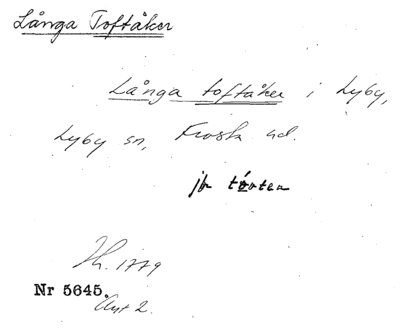 Långa Toftåker
Långa toftåker i Lyby,
Lyby sn, Frosta hd.
jfr tóoten
Th. 1779
Nr 5645.
Akt 2.